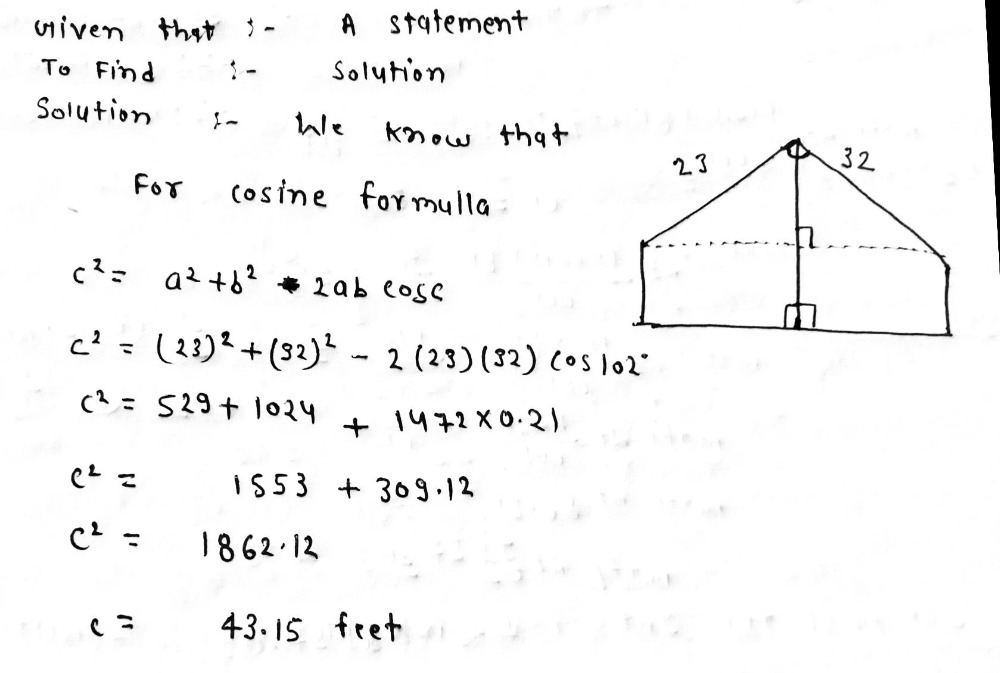 Given that :- A statement
To Find :- Solution
Solution :- We know that
For cosine formulla
23
32
c² = a² + b² - 2ab cosc
c² = (23)² + (32)² - 2 (23) (32) cos 102°
c² = 529 + 1024 + 1472 × 0.21
c² = 1553 + 309.12
c² = 1862.12
c = 43.15 feet